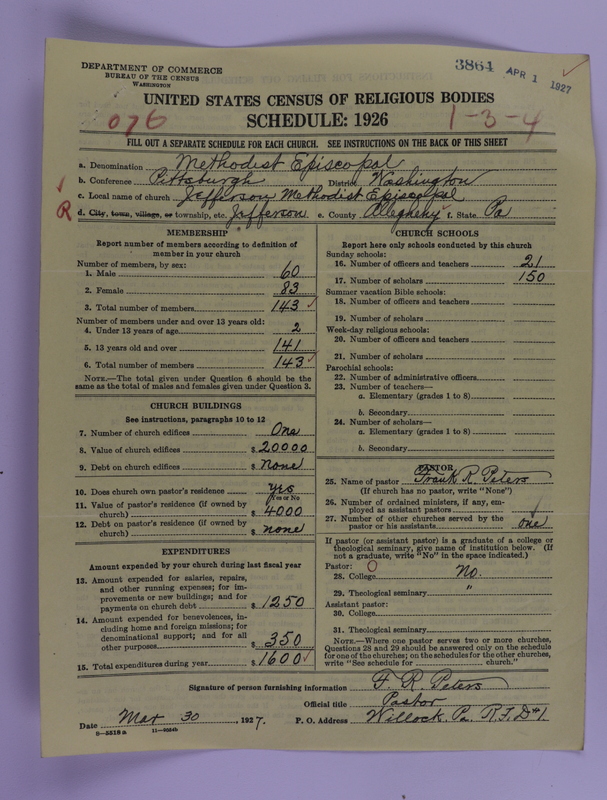 DEPARTMENT OF COMMERCE
BUREAU OF THE CENSUS
WASHINGTON
3864 APR 1 1927
UNITED STATES CENSUS OF RELIGIOUS BODIES
076 SCHEDULE: 1926 1-3-4
FILL OUT A SEPARATE SCHEDULE FOR EACH CHURCH. SEE INSTRUCTIONS ON THE BACK OF THIS SHEET
a. Denomination Methodist Episcopal
b. Conference Pittsburgh District Washington
c. Local name of church Jefferson Methodist Episcopal
R d. City, town, village, or township, etc. Jefferson e. County Allegheny f. State Pa
MEMBERSHIP
Report number of members according to definition of
member in your church
Number of members, by sex:
1. Male 60
2. Female 83
3. Total number of members 143
Number of members under and over 13 years old:
4. Under 13 years of age 2
5. 13 years old and over 141
6. Total number of members 143
NOTE.—The total given under Question 6 should be the
same as the total of males and females given under Question 3.
CHURCH BUILDINGS
See instructions, paragraphs 10 to 12
7. Number of church edifices One
8. Value of church edifices $ 20000
9. Debt on church edifices $ none
10. Does church own pastor's residence yes
Yes or No
11. Value of pastor's residence (if owned by
church) $ 4000
12. Debt on pastor's residence (if owned by
church) $ none
EXPENDITURES
Amount expended by your church during last fiscal year
13. Amount expended for salaries, repairs,
and other running expenses; for im-
provements or new buildings; and for
payments on church debt $ 1250
14. Amount expended for benevolences, in-
cluding home and foreign missions; for
denominational support; and for all
other purposes $ 350
15. Total expenditures during year $ 1600
CHURCH SCHOOLS
Report here only schools conducted by this church
Sunday schools:
16. Number of officers and teachers 21
17. Number of scholars 150
Summer vacation Bible schools:
18. Number of officers and teachers
19. Number of scholars
Week-day religious schools:
20. Number of officers and teachers
21. Number of scholars
Parochial schools:
22. Number of administrative officers
23. Number of teachers—
a. Elementary (grades 1 to 8)
b. Secondary
24. Number of scholars—
a. Elementary (grades 1 to 8)
b. Secondary
PASTOR
25. Name of pastor Frank R. Peters
(If church has no pastor, write "None")
26. Number of ordained ministers, if any, em-
ployed as assistant pastors
27. Number of other churches served by the
pastor or his assistants one
If pastor (or assistant pastor) is a graduate of a college or
theological seminary, give name of institution below. (If
not a graduate, write "No" in the space indicated.)
Pastor: O
28. College No.
29. Theological seminary "
Assistant pastor:
30. College
31. Theological seminary
NOTE.—Where one pastor serves two or more churches,
Questions 28 and 29 should be answered only on the schedule
for one of the churches; on the schedules for the other churches,
write "See schedule for church."
Signature of person furnishing information F. R. Peters
Official title Pastor
Date Mar 30, 1927. P. O. Address Willock, Pa. R.F.D #1.
8—5518a 11—9004b